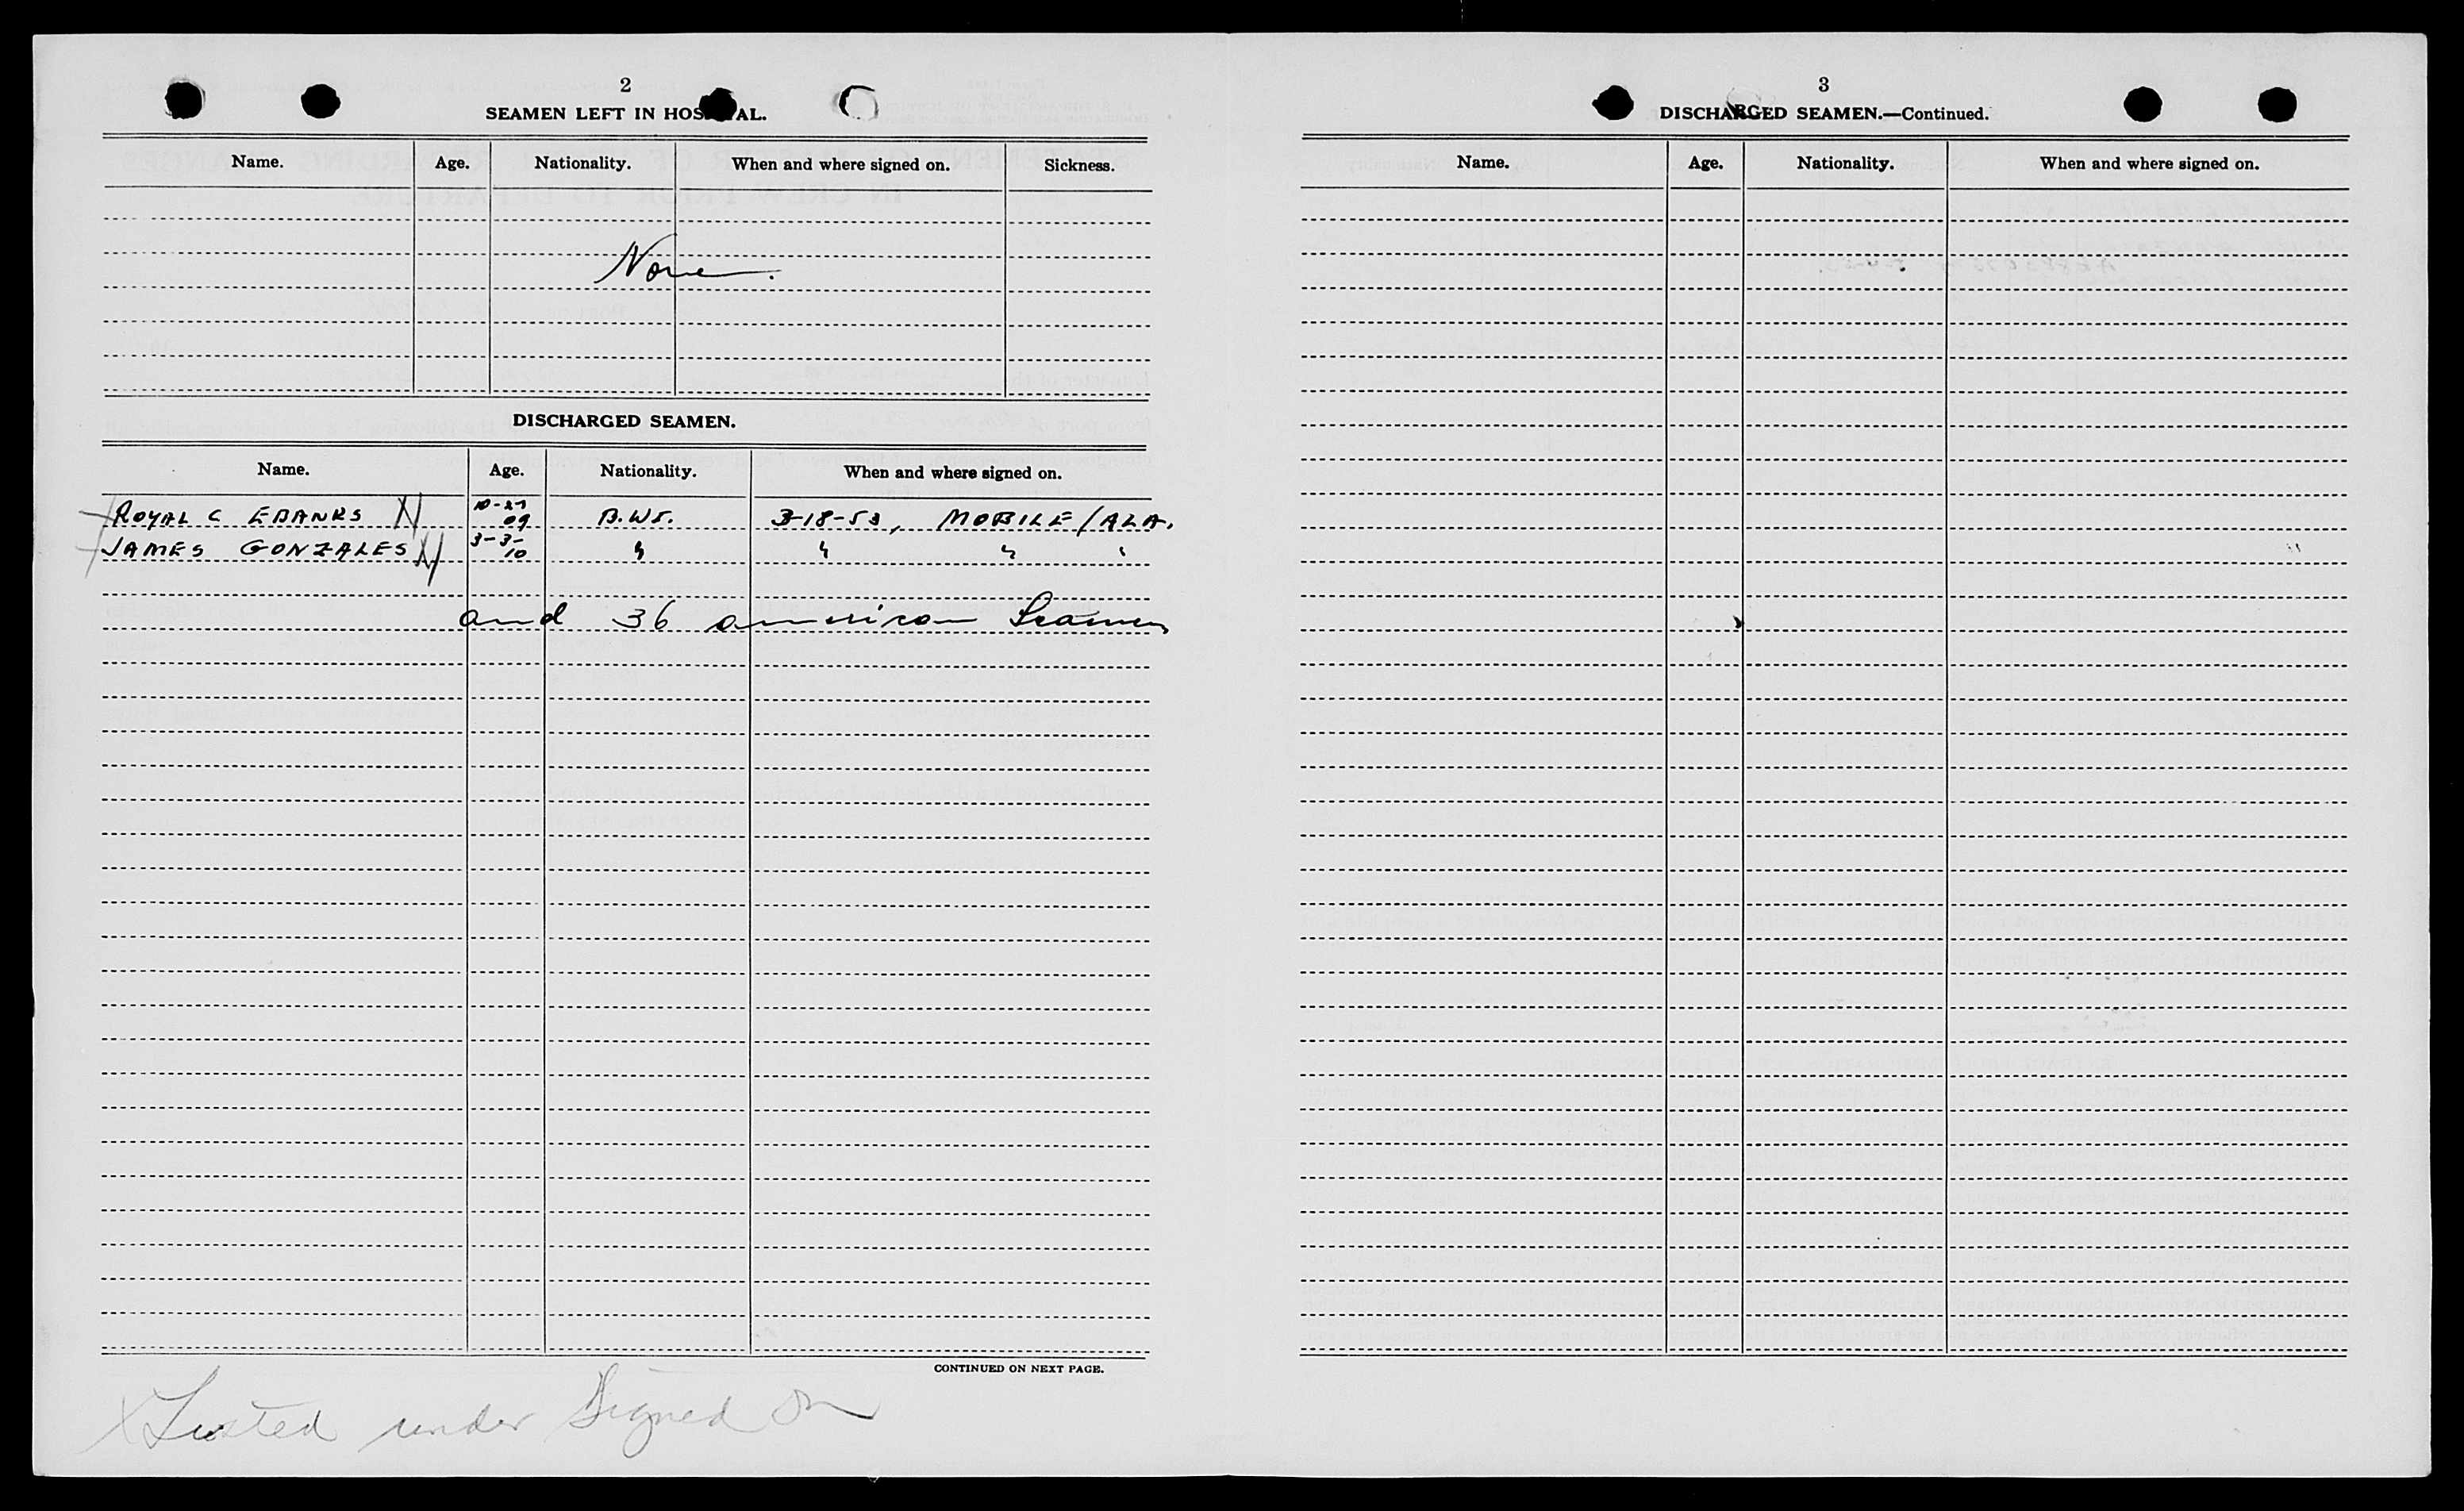 2
SEAMEN LEFT IN HOSPITAL.
Name. Age. Nationality. When and where signed on. Sickness.
None.
DISCHARGED SEAMEN.
Name. Age. Nationality. When and where signed on.
ROYAL C EBANKS 10-27 09 B.W.I. 3-18-53, MOBILE/ALA.
JAMES GONZALES 3-3-10 " " " "
and 36 american Seamen
CONTINUED ON NEXT PAGE.
X Listed under Signed On
3
DISCHARGED SEAMEN.—Continued.
Name. Age. Nationality. When and where signed on.